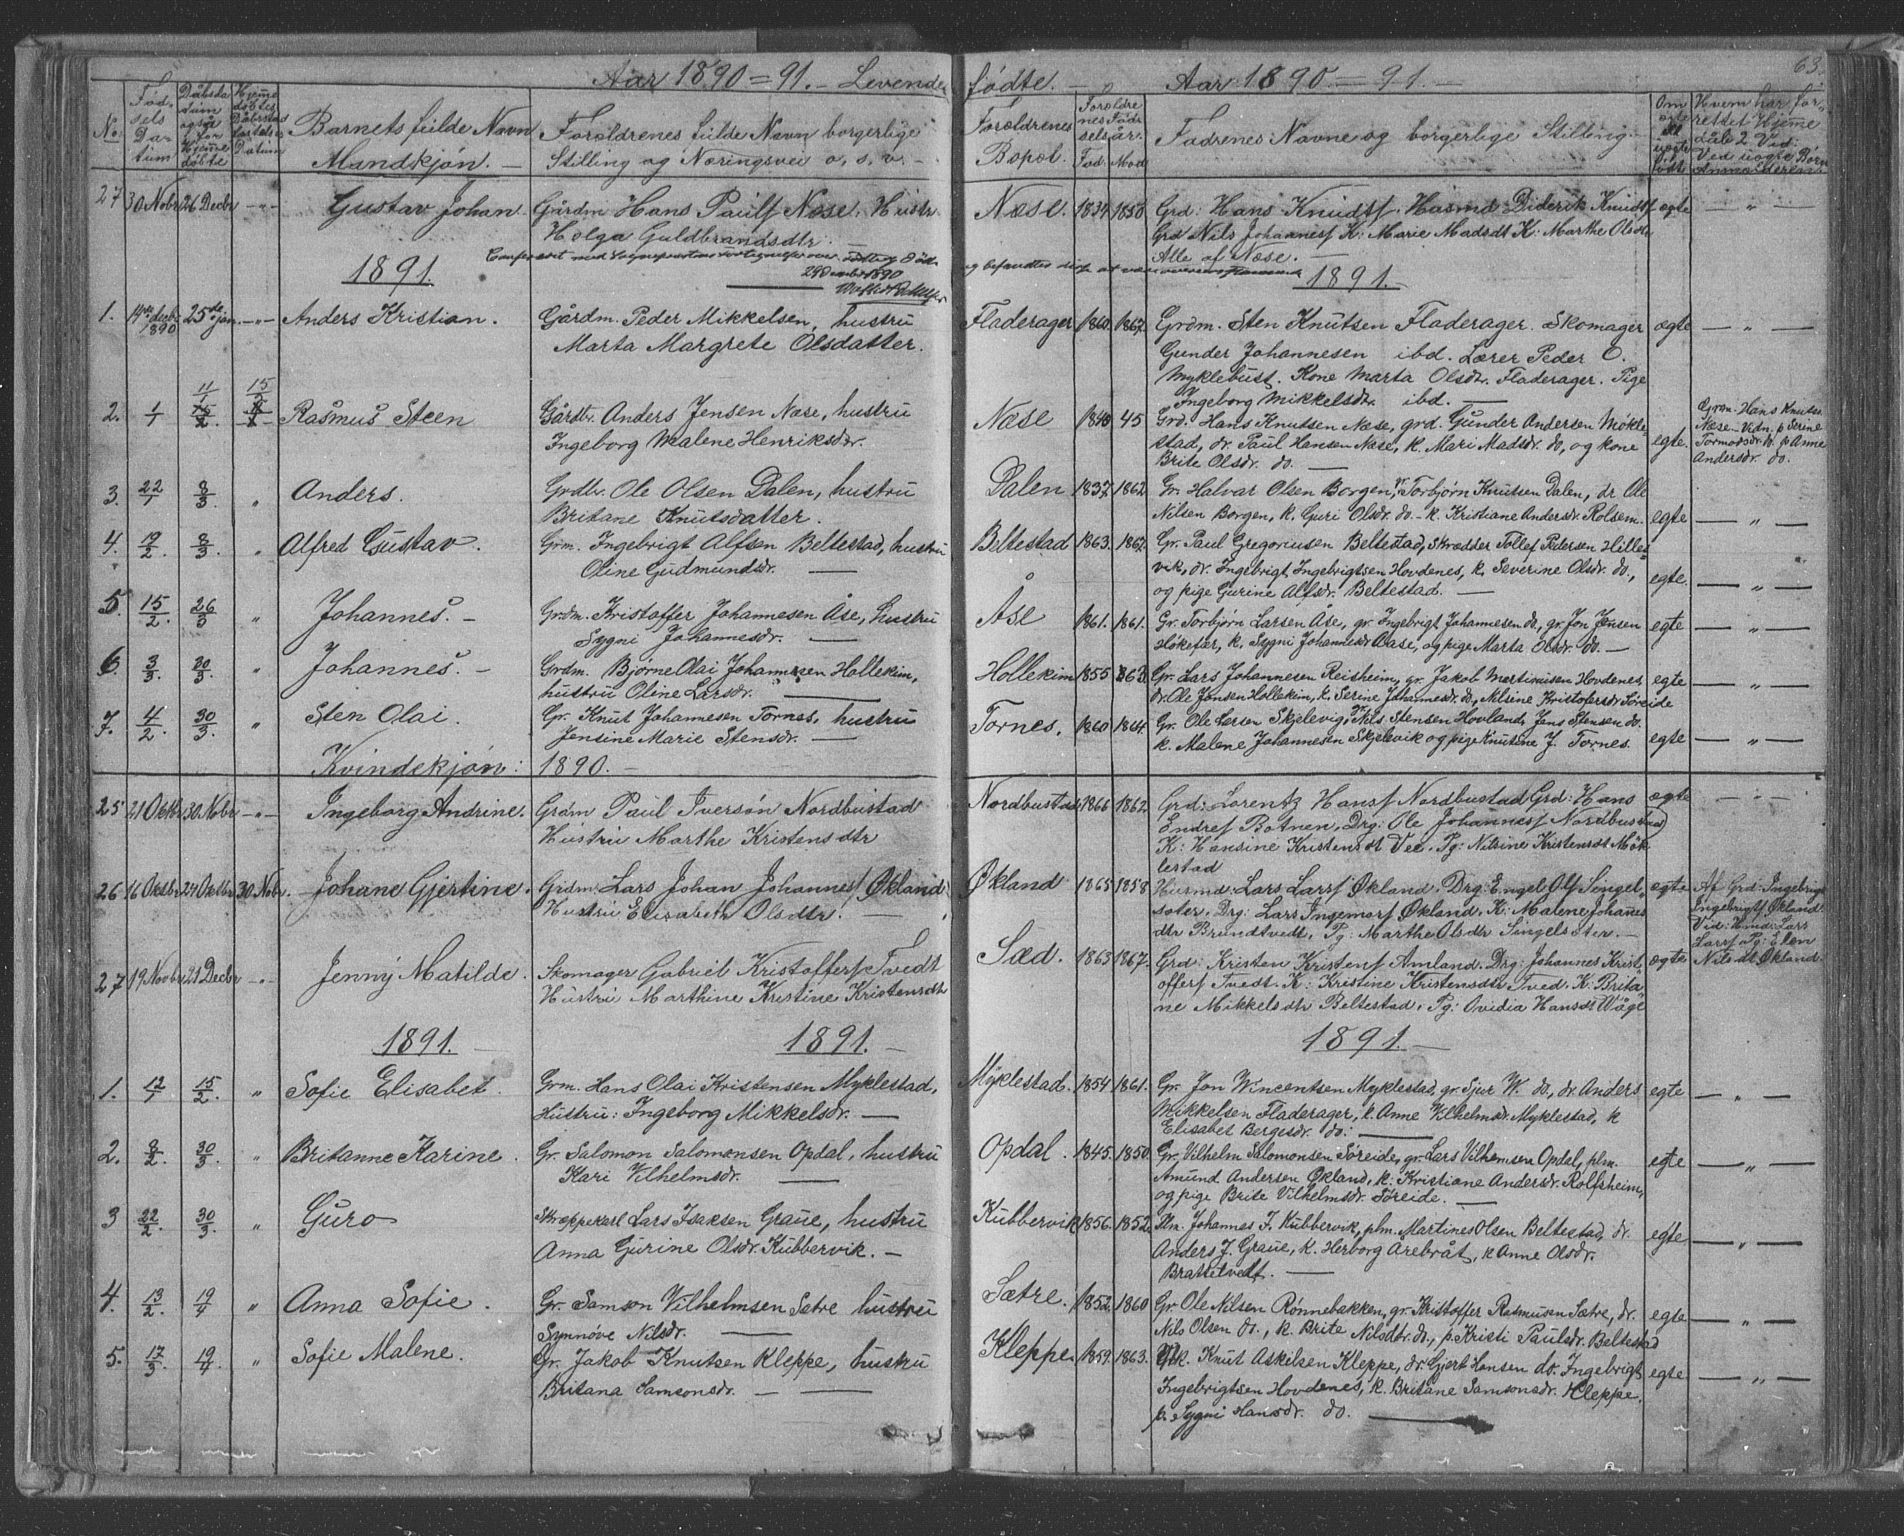 Aar 1890 = 91. - Levende fødte. - Aar 1890 = 91. -
63.
No. Fødselsdatum Dåbsdatum også for Hjemmedøbte Hjemmedøbtes Datum Barnets fulde Navn Forældrenes fulde Navn borgerlige Forældrenes Bopæl. Forældrenes Fødselsår. Fad. Mod. Fadrenes Navne og borgerlige Stilling. Hvem har forrettet Hjemmedåb?
Mandkjøn. - Stilling og Næringsvei o. s. v. -
27 30 Nobr 26 Decbr -"- Gustav Johan. Gårdm Hans Pauls Næse. Hustr. Næse. 1834 1850 Grd: Hans Knuds, Husmd Diderik Knuds egte — " —
Helga Guldbrandsdtr. Grd Nils Johannes K: Marie Madsdt K: Marthe Olsdtr
Alle af Næse. -
1891. 1890 1891.
1. 14de decbr 1890 25de jan. -"- Anders Kristian. Gårdm. Peder Mikkelsen, hustru Fladerager 1860 1867. Grdm. Sten Knutsen Fladerager. Skomager egte — " —
Marta Margrete Olsdatter. Gunder Johannesen ibd. Lærer Peder O.
Myklebust. Kone Marta Olsdr. Fladerager. Pige
Ingeborg Mikkelsdr. ibd. —
2. 1/1 11/1 15/2 Rasmus Steen Gårdbr. Anders Jensen Næse, hustru Næse 1840 45 Grd. Hans Knutsen Næse, grd. Gunder Andersen Møkle- egte. Grdm. Hans Knutsen
Ingeborg Malene Henriksdr. stad, dr. Paul Hansen Næse, k. Mari Madsdr. do, og kone Næse - Vidn. p Serine
Brite Olsdr. do. — Tormodsdr. k. p Anne
Andersdr. do.
3. 22/1 8/3 " Anders. Grdbr. Ole Olsen Dalen, hustru Dalen 1837. 1862 Gr. Halvar Olsen Borgen, Torbjørn Knutsen Dalen, dr Ole
Britane Knutsdatter. Nilsen Borgen, k. Guri Olsdr. do - k. Kristiane Andersdr. Rolsem. egte — " —
4. 19/2 8/3 " Alfred Gustav. Grm. Ingebrigt Alfsen Beltestad, hustru Beltestad 1863. 1867. Gr. Paul Gregoriusen Beltestad, Skrædder Tollef Pedersen Hille-
Oline Gudmundsdr. — vik, dr. Ingebrigt Ingebrigtsen Hovdenes, k. Severine Olsdr. do., egte. — " —
og pige Gurine Alfsdr. Beltestad. —
5. 15/2 26/3 " Johannes. - Grdm. Kristoffer Johannesen Åse, hustru Åse 1861. 1861. Gr. Torbjørn Larsen Åse, gr. Ingebrigt Johannesen do, gr. Jon Jensen egte — " —
Sygni Johannesdr. — Høkefær, k. Sygni Johannesdr Aase, og pige Marta Olsdr. do. —
6. 3/3 30/3 " Johannes. - Grdm. Bjørne Olai Johannesen Hollekim, Hollekim 1855 1863 Gr. Lars Johannesen Reisheim, gr. Jakob Martinusen Hovdenes, egte — " —
hustru Oline Larsdr. — dr. Ole Jensen Hollekim, k. Serine Johannesdr. do, Nilsine Kristofersdr. Søreide
7. 4/2 30/3. " Sten Olai. Gr. Knut Johannesen Tornes, hustru Tornes. 1860 1864. Gr. Ole Larsen Skjelevig, Nils Stensen Hovland, Jens Stensen do.
Jensine Marie Stensdr. — k. Malene Johannesen Skjelevik og pige Knutine J. Tornes. egte — " —
Kvindekjøn: 1890. -
25 21 Oktbr 30 Nobr -"- Ingeborg Andrine. Grdm Paul Iversøn Nordbustad Nordbustad 1866 1862. Grd: Lorentz Hans Nordbustad Grd: Hans egte — " —
Hustru Marthe Kristensdtr Endres Botnen. Drg: Ole Johannes Nordbustad
K: Hansine Kristensdt Vee. Pg: Nilsine Kristensdt Møk
lestad
26 16 Oktbr 27 Oktbr 30 Nobr. Johane Gjertine. Grdm. Lars Johan Johannes Økland Økland 1865 1858 Husmd: Lars Lars Økland. Drg: Engel Ols Singel- egte Af Grd: Ingebrigt
Hustru Elisabeth Olsdtr. — søter. Drg: Lars Ingemars Økland. K: Malene Johannes Ingebrigts Økland
dtr Brundtvedt. Pg: Marthe Olsdtr Singelsøter. — Vid: Hmd: Lars
Lars Pg: Elen
27 19 Novbr 21 Decbr -"- Jenny Matilde. Skomager Gabriel Kristoffers Tvedt Sæd. 1863 1867. Grd: Kristen Kristens Amland. Drg: Johannes Krist- egte Nilsdt Økland.
Hustru Marthine Kristine Kristensdt offers Tvedt. K: Kristine Kristensdtr Tved. K: Brita
ne Mikkelsdtr Beltestad. Pg: Ovidia Hansdt Våge
1891. - 1891. - 1891. -
1. 12/1 15/2. " Sofie Elisabet. Grm. Hans Olai Kristensen Myklestad, Myklestad. 1854 1861. Gr. Jon Wincentsen Myklestad, gr. Sjur W. do, dr. Anders egte — " —
Hustru: Ingeborg Mikkelsdr. — Mikkelsen Fladerager, k. Anne Vilhelmsdr. Myklestad, k
Elisabet Bergesdr. do. —
2. 8/2. 30/3 " Britanne Karine. Gr. Salomon Salomonsen Opdal, hustru Opdal. 1845. 1850. Gr. Vilhelm Salomonsen Søreide, gr. Lars Vilhemsen Opdal, plm. egte — " —
Kari Vilhelmsdr. — Amund Andersen Økland, k. Kristiane Andersdr. Rolfsheim,
og pige Brite Vilhelmsdr. Søreide. —
3 22/2. 30/3. " Guro Skræppekarl Lars Isaksen Graue, hustru Kubbervik 1856. 1852. Plm. Johannes J. Kubbervik, plm. Martines Olsen Beltestad, dr.
Anna Gurine Olsdr. Kubbervik. — Anders J. Graue, k. Herborg Arebråt, k Anne Olsdr. egte. — " —
Brattetvedt. —
4. 13/2. 19/4 " Anna Sofie. Gr. Samson Vilhelmsen Sætre hustru Sætre. 1852. 1860 Gr. Ole Nilsen Rønnebakken, gr. Kristoffer Rasmusen Sætre, dr. egte — " —
Synnøve Nilsdr. — Nils Olsen do., k. Brite Nilsdtr. do., p. Kristi Paulsdr. Beltestad
5. 17/3 19/4 " Sofie Malene. Gr. Jakob Knutsen Kleppe, hustru Kleppe. 1859. 1863. Knut Askelsen Kleppe, dr. Gjert Hansen do. Ingebrigt egte — " —
Britana Samsonsdr. — Ingebrigtsen Hovdenes, k. Britane Samsonsdr. Kleppe,
p. Sygni Hansdr. do. —